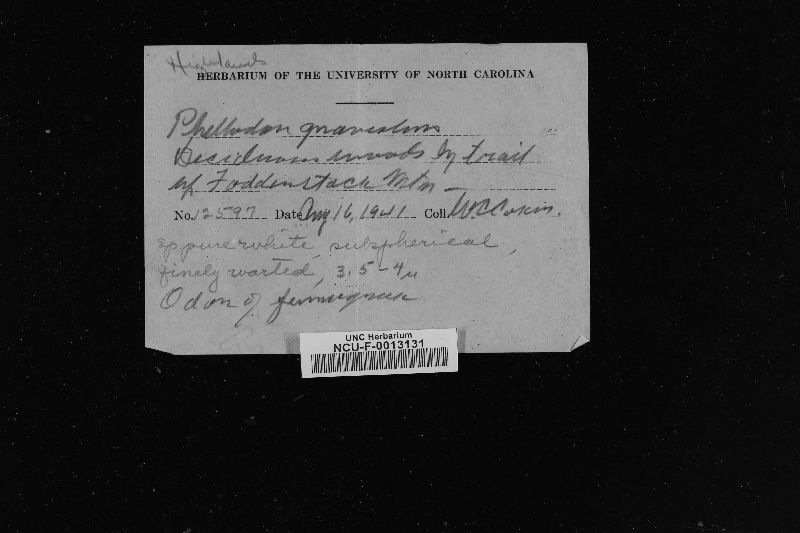 Highlands
HERBARIUM OF THE UNIVERSITY OF NORTH CAROLINA
Phellodon graveolens
Deciduous woods by trail
up Fodderstack Mtn
No. 12597 Date Aug 16, 1941 Coll. W C Coker.
sp pure white, subspherical,
finely warted, 3.5-4 µ
Odor of fenugreek
UNC Herbarium
NCU-F-0013131